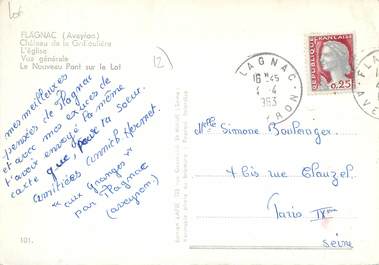 Lot
FLAGNAC (Aveyron)
Château de la Griffoulière
L'église
Vue générale
Le Nouveau Pont sur le Lot
12
mes meilleures
pensées de Flagnac
et avec mes excuses de
t'avoir envoyé la même
carte que pour ta sœur.
amitiées annick
"aux Granges"
par Flagnac
(aveyron)
101.
FLAGNAC
16H45
4
1963
AVEYRON
REPUBLIQUE FRANCAISE
0,25
Melle Simone Boulenger
4 bis rue Clauzel
Paris IXème
Seine